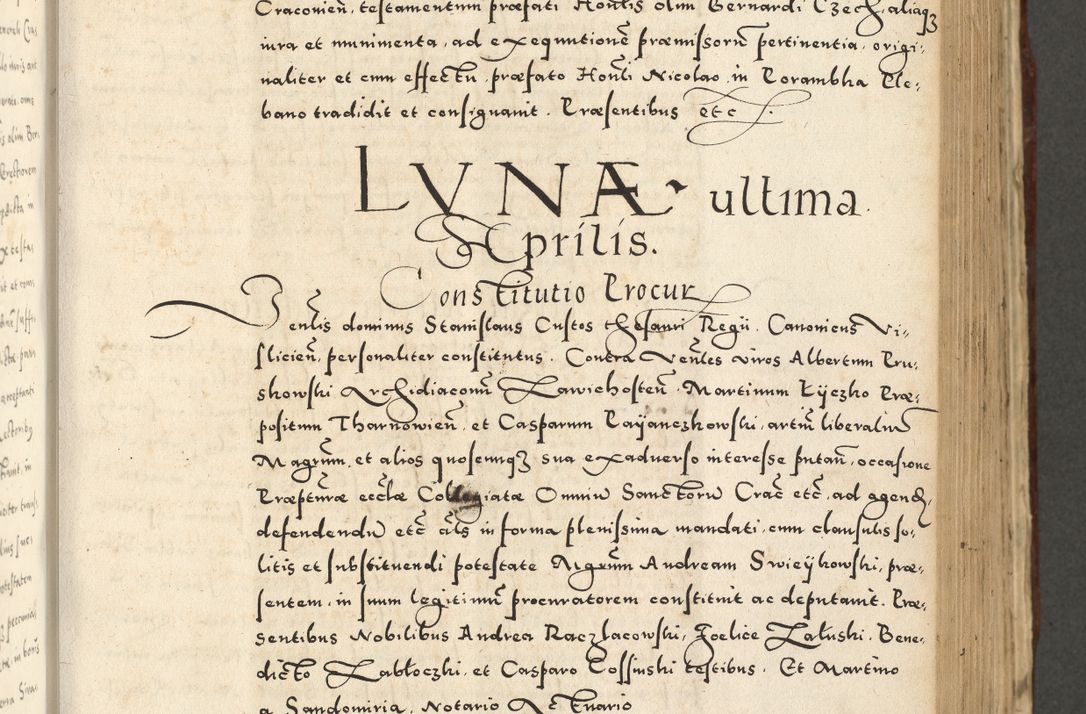 Craconień, testamentum præfati Honlis olim Bernardi Czech, aliaqȝ
iura et munimenta, ad exequutionē præmissorū pertinentia, origi:
naliter et cum effectu, præfato Honli Nicolao, in Porambka Ple:
bano tradidit et consignauit. Præsentibus etc.
LVNÆ ultima
Aprilis.
Constitutio Procur
Venlis dominus Stanislaus Custos thesauri Regii. Canonicus Vi:
slicień, personaliter constitutus. Contra Venles viros Albertum Pru:
skowski Archidiaconū Zawichosteń. Martinum Łÿczko Præ:
positum Tharnowień, et Casparum Raÿanczkowski, artiū liberaliū
Magrum, et alios quoscunqȝ sua exaduerso interesse putań, occasione
Præpturæ ecclæ Collegiatæ Omniū Sanctorū Crac etc, ad agend,
defendendū etc als in forma plenissima mandati, cum clausulis so:
litis et substituendi potestate Mgrum Andream Swieÿkowski, præ:
sentem, in suum legitimū procuratorem constituit ac deputauit. Præ:
sentibus Nobilibus Andrea Raczlacowski, Foelice Załuski, Bene:
dicto Zabłoczki, et Casparo Cossinski testibus. Et Martino
a Sandomiria, Notario Actuario